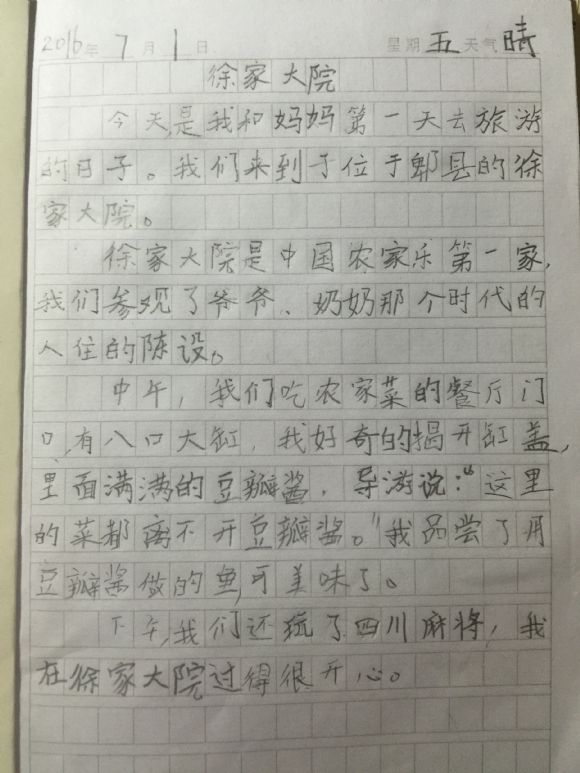 2016年7月1日 星期五天气晴
徐家大院
今天,是我和妈妈第一天去旅游
的日子。我们来到于位于郫县的徐
家大院。
徐家大院是中国农家乐第一家,
我们参观了爷爷、奶奶那个时代的
人住的陈设。
中午,我们吃农家菜的餐厅门
口,有八口大缸,我好奇的揭开缸盖,
里面满满的豆瓣酱,导游说:“这里
的菜都离不开豆瓣酱。”我品尝了用
豆瓣酱做的鱼,可美味了。
下午,我们还玩了四川麻将,我
在徐家大院过得很开心。